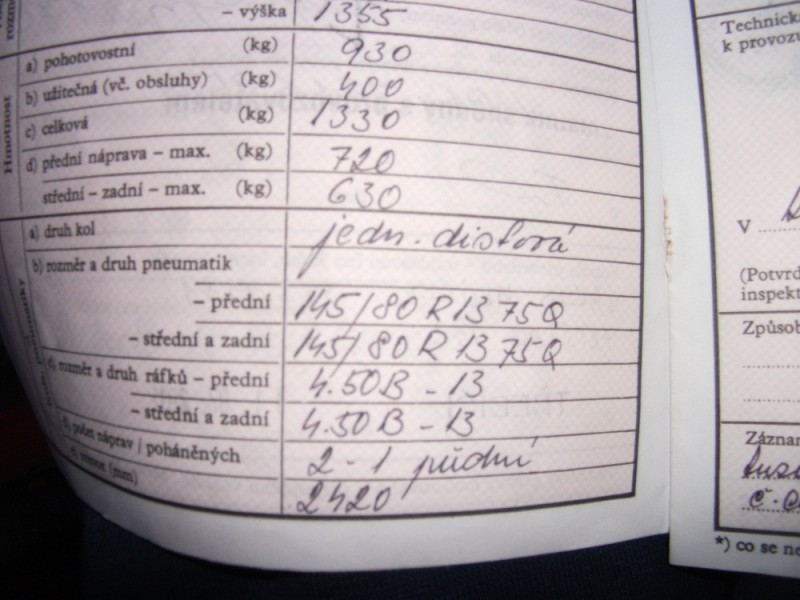 – výška 1355
Hmotnost
a) pohotovostní (kg) 930
b) užitečná (vč. obsluhy) (kg) 400
c) celková (kg) 1330
d) přední náprava – max. (kg) 720
střední – zadní – max. (kg) 630
a) druh kol jedn. disková
b) rozměr a druh pneumatik
– přední 145/80 R13 75Q
– střední a zadní 145/80 R 13 75Q
c) rozměr a druh ráfků – přední 4.50B – 13
– střední a zadní 4.50B – 13
počet náprav / poháněných 2 - 1 přední
(mm) 2420
Technická
k provozu
V
(Potvrd
inspekt
Způsob
Záznam
*) co se ne